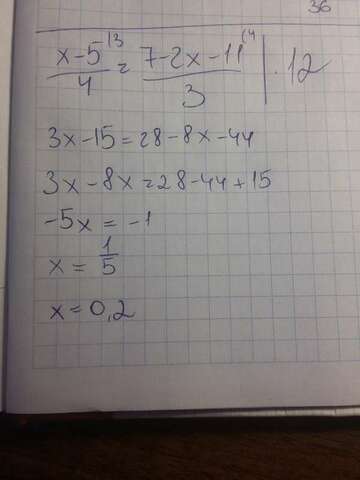 36
x-5/4 |3 = 7-2x-11/3 (4 | · 12
3x-15=28-8x-44
3x-8x=28-44+15
-5x = -1
x = 1/5
x=0,2